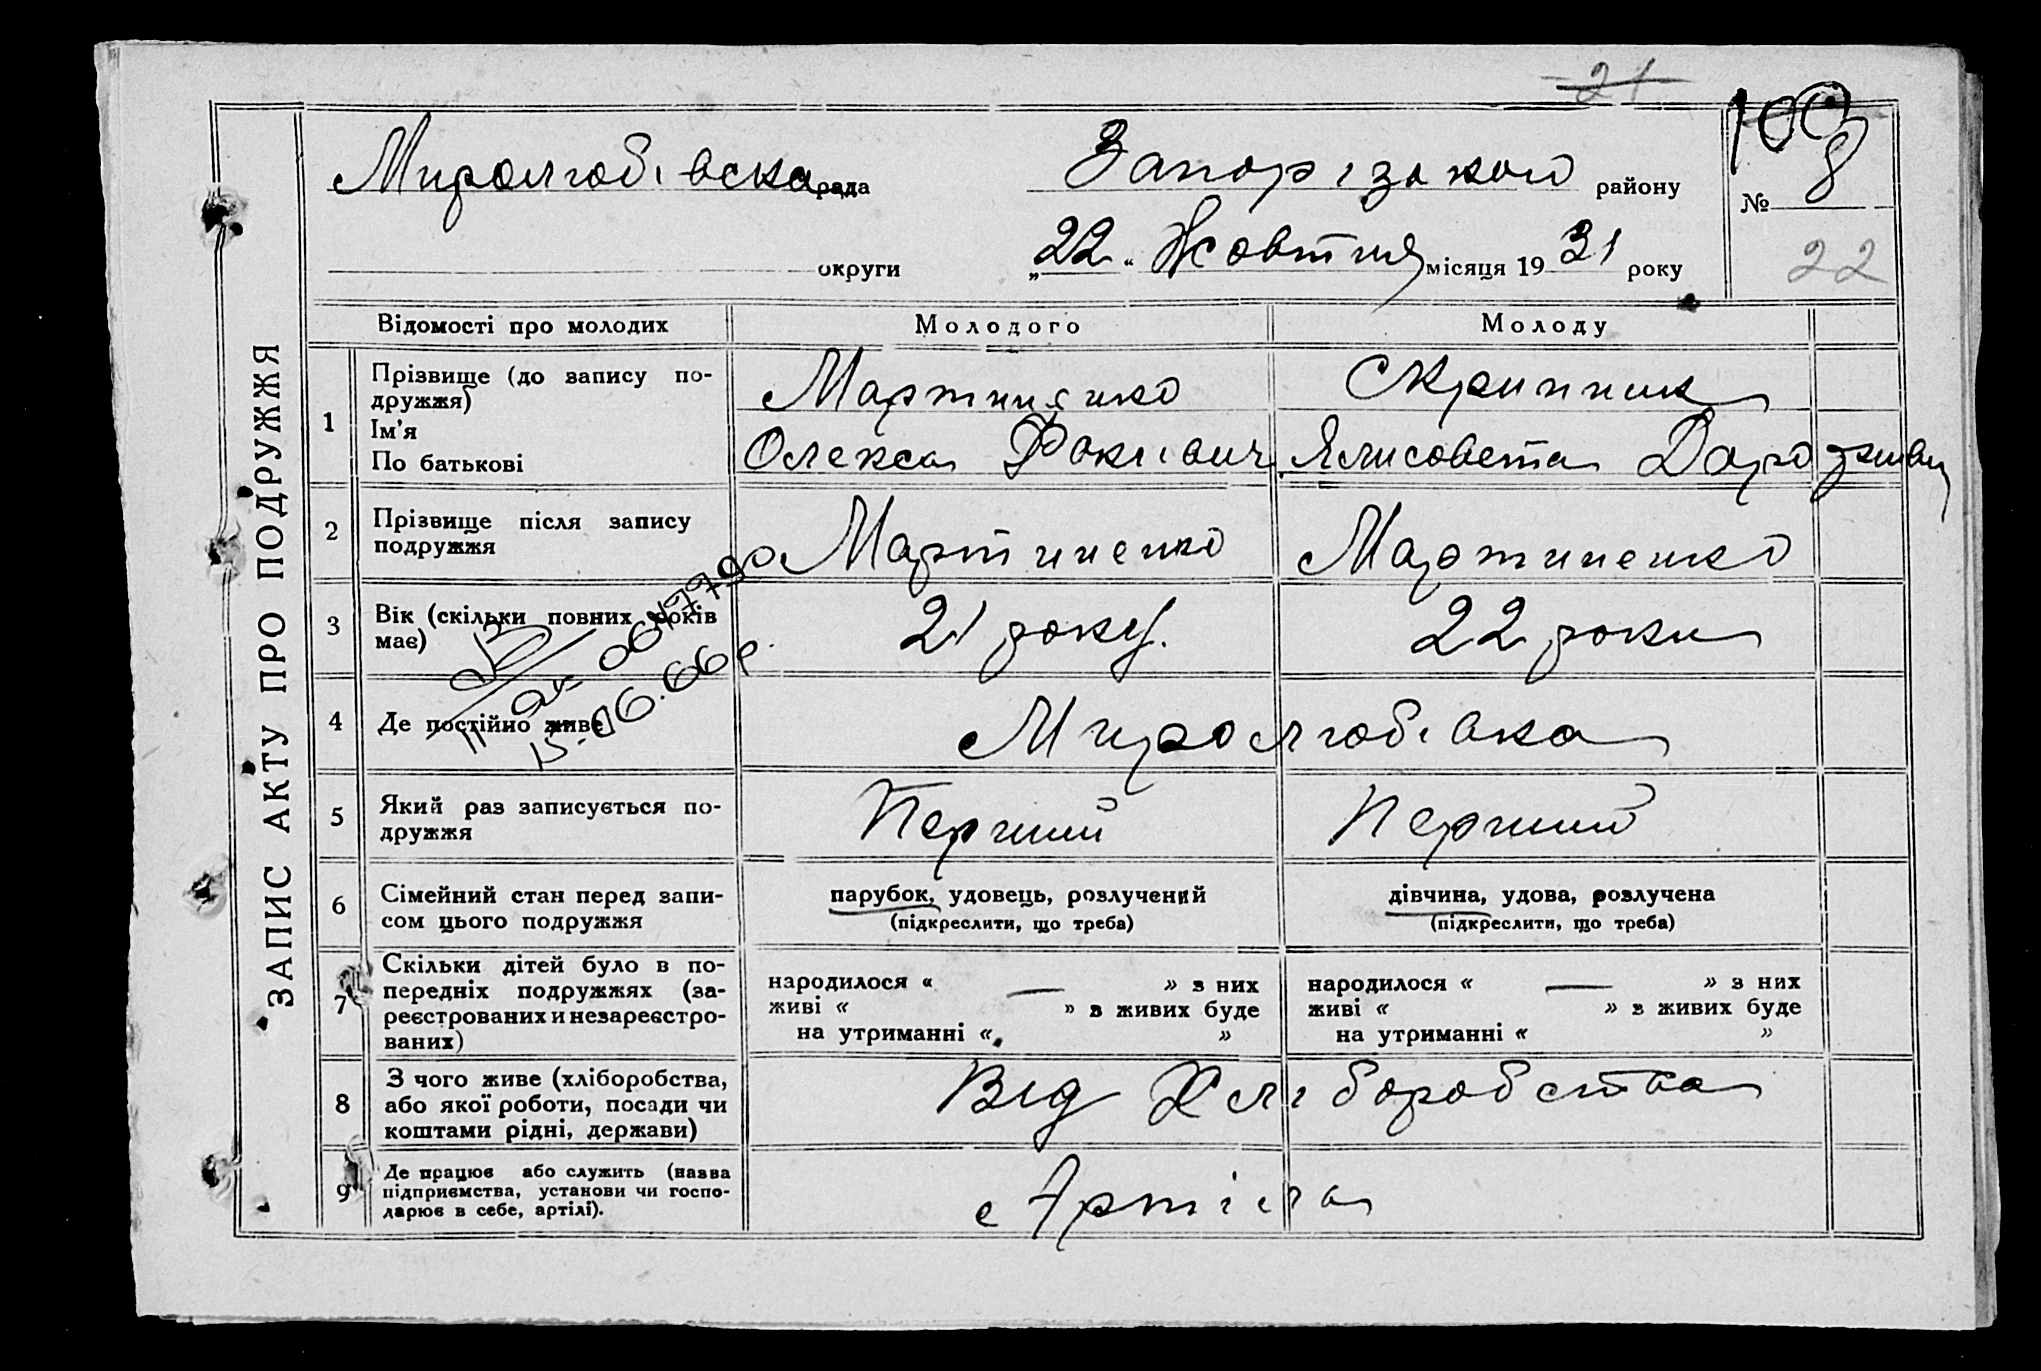 21
100
Миролюбівска рада Запорізького району № 8
округи „22“ Жовтня місяця 1931 року 22
ЗАПИС АКТУ ПРО ПОДРУЖЖЯ
Відомості про молодих Молодого Молоду
1 Прізвище (до запису по-
дружжя) Мартиненко Скрипник
Ім'я
По батькові Олекса Фокієвич Ялисовета
2 Прізвище після запису
подружжя Мартиненко Мартиненко
3 Вік (скільки повних років
має) 21 року. 22 роки
4 Де постійно живе Миролюбівка
15-06.66 р.
5 Який раз записується по-
дружжя Перший Перший
6 Сімейний стан перед запи-
сом цього подружжя
парубок, удовець, розлучений
(підкреслити, що треба)
дівчина, удова, розлучена
(підкреслити, що треба)
7 Скільки дітей було в по-
передніх подружжях (за-
реєстрованих и незареєстро-
ваних)
народилося « — » з них
живі « » з живих буде
на утриманні « »
народилося « — » з них
живі « » з живих буде
на утриманні « »
8 З чого живе (хліборобства,
або якої роботи, посади чи
коштами рідні, держави) Від Хліборобства
9 Де працює або служить (назва
підприємства, установи чи госпо-
дарює в себе, артілі). Артіла